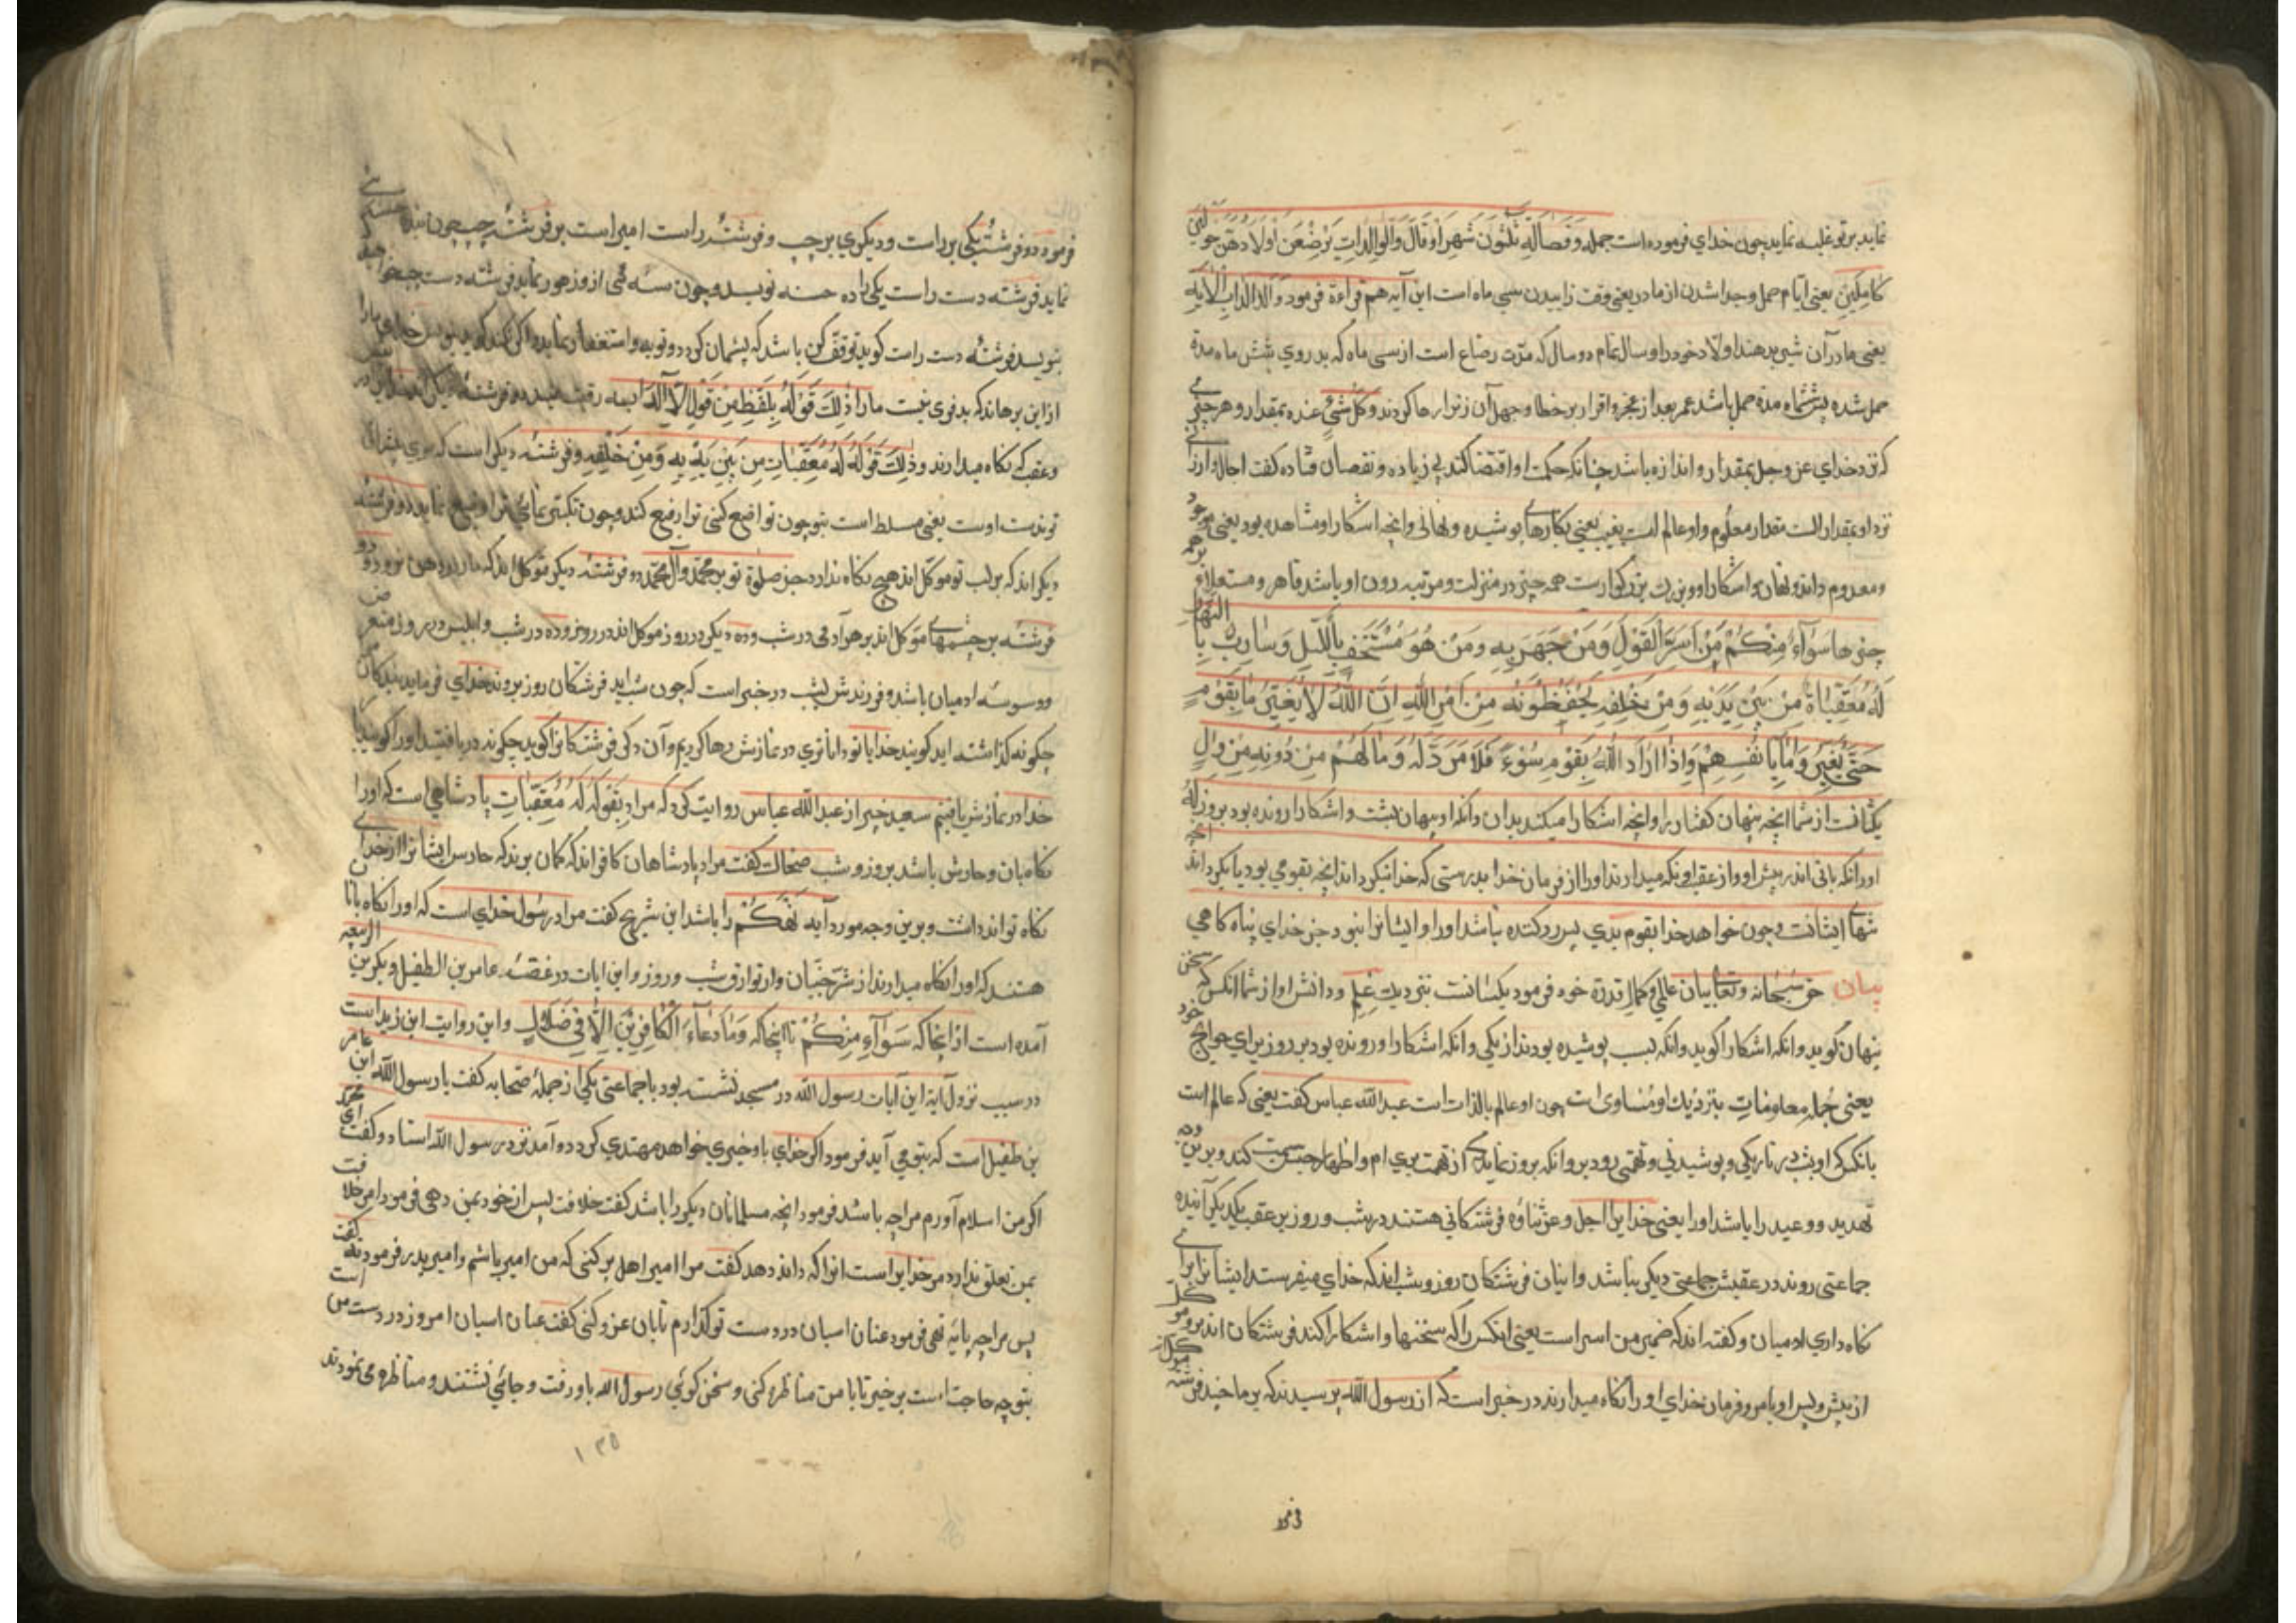 نماید بر تو غلبه نماید چون خدای فرموده است حمله وَفِصَالُهُ ثَلٰثُونَ شَهْرًا وَقَالَ وَالْوَالِدَاتِ يُرْضِعْنَ اَوْلَادَهُنَّ حَوْلَيْنِ
كَامِلَيْنِ یعنی ایام حمل و جدا شدن از مادر یعنی وقت زاییدن سی ماه است این آیه هم قراءة فرمود وَالْوَالِدَاتِ الآيه
یعنی مادرآن شیر بدهند اولاد خود را دو سال تمام دو سال که مدّت رضاع است از سی ماه که بدر روی شش ماه مدة
حمل شده پس ششماه مدة حمل باشد عمر بعد از عجز و اقرار بر خطا و جهل آن زنرا رها کردند وَكُلُّ شَيْءٍ عنده بمقدار و هر چیزی
که نزد خدای عز وجل بمقدار و اندازه باشد چنانکه حکمت او اقتضا کند بی زیاده و نقصان قتاده گفت اجال و ارزاق
نزد او بمقدار است مقدار معلوم و او عالم است بغیب یعنی بکارهای پوشیده و نهانی و انچه اشکارا و مشاهده بود یعنی موجود
و معدوم داند و نهان و اشکارا و او بزرگ بزرگوارست همه چیز در منزلت و مرتبه دون او باشد قاهر و مستعلی بر همه
چیزها سَوَآءٌ مِنْكُمْ مَنْ اَسَرَّ الْقَوْلَ وَمَنْ جَهَرَ بِهِ وَمَنْ هُوَ مُسْتَخْفٍ بِاللَّيْلِ وَسَارِبٌ بِالنَّهَارِ
لَهُ مُعَقِّبَاة مِنْ بَيْنِ يَدَيْهِ وَمِنْ خَلْفِهِ يَحْفَظُونَهُ مِنْ اَمْرِ اللّٰهِ اِنَّ اللّٰهَ لَا يُغَيِّرُ مَا بِقَوْمٍ
حَتّٰى يُغَيِّرُوا مَا بِاَنْفُسِهِمْ وَاِذَا اَرَادَ اللّٰهُ بِقَوْمٍ سُوْءً فَلَا مَرَدَّ لَهُ وَمَا لَهُمْ مِنْ دُونِهِ مِنْ وَالٍ
یکسانست از شما انچه پنهان گفتار را و انچه اشکارا میکند بدان وانکه او پنهان بشب و اشکارا رونده بود بروز
اورا که باقی اند در پیش او و از عقب او نکه میدارند او را از فرمان خدا بدرستی که خدا نیکرداند انچه بقومی بود تا بکردانند انچه
نفسهای ایشانست و چون خواهد خدا بقوم بدی پس رد کننده نباشد او را و ایشانرا نبود جز خدای پناه کاهی
بیان حق سبحانه و تعالی بیان عالمی و کمال قدرة خود فرمود یکسانست بنزدیک علم و دانش او از شما انکس که سخن
پنهان گوید و انکه اشکارا گوید و انکه بشب پوشیده بود از یکی و انکه اشکارا و رونده بود بروز برای حوایج خود
یعنی جمله معلومات بنزدیک او متساوی است چون او عالم بالذات است عبد الله عباس گفت یعنی که عالم است
بانکس که او بشب در تاریکی و پوشیدنی و تهمتی رود و انکه بروز نماید که از تهمت بری ام و اظهار کند و برین وجه
تهدید و وعید را باشد او را یعنی خدایرا اجل و عز ثناؤه فرشتکانی هستند در شب و روز بر عقب یکدیکر آینده
جماعتی روند در عقبش جماعتی دیکر بیاشد و اینان فرشتکان روز و شب اند که خدای میفرستد ایشانرا برای
نکاه داری ادمیان و کفته اند که ضمیر من اسر است یعنی انکس را که سخنها و اشکارا کند فرشتکان اند بر و موکل
از پیش و پس او بامر و فرمان خدای او را نکاه میدارند در خبر است که از رسول الله پرسیدند که بر ما چند فرشته موکل اند
فرمود دو فرشته یکی بر راست و دیکری بر چپ و فرشته راست امیر است بر فرشته چپ چون بنده حسنه
نماید فرشته دست راست یکی را ده حسنه نویسد و چون سیئه ئی از و ظهور نماید فرشته دست چپ خواهد که
بنویسد فرشته دست راست گوید توقف کن باشد که پشیمان کردد و توبه و استغفار نماید و اکر نکند گوید بنویس خدای ما را
از این برهاند که بد قوی نیست ما را ذٰلِكَ قَوْلُهُ يَلْفِظُ مِنْ قَوْلٍ اِلَّا لَدَيْهِ رقیب عتید دو فرشته دیکر
و عقب که نکاه میدارند وَذٰلِكَ قَوْلُهُ لَهُ مُعَقِّبَاتٍ مِنْ بَيْنِ يَدَيْهِ وَمِنْ خَلْفِهِ و فرشته دیکر است که موی پیشانی
تو بدست اوست یعنی مسلط است بتو چون تواضع کنی ترا رفیع کند و چون تکبّر نمائی ترا وضیع نماید و دو فرشته
دیکر اند که بر لب تو موکّل اند هیچ نکاه ندارد جز صلوة تو بر محمّد و آل محمّد دو فرشته دیکر موکل اند که مار در دهن نرود دو
فرشته بر چشمهای موکل اند بر هر آدمی در شب و ده دیکر در روز موکل اند در روز و ده در شب و ابلیس در روز متعرض
و وسوسه ادمیان باشد و فرزندش بشب در خبر است که چون شب اید فرشتکان روز بروند خدای فرماید بندکان
چکونه کذاشته اید کویند خدایا تو داناتری در نمازش رها کردیم و آن دکر فرشتکانرا کوید چکونه دریافتید او را کویند
خدا در نمازش یافتیم سعید جبیر از عبد الله عباس روایت کرد که مراد بِقَوْلِهِ لَهُ مُعَقِّبَاتٍ پادشاهی است که او را
نکاه بان و حارس باشد بروز و شب ضحاک گفت مراد پادشاهان کافر اند که کمان برند که حارس ایشانرا از خدای
نکاه تواند داشت و برین وجه مورد آیه تَهَكُّمْ را باشد ابن شریح گفت مراد رسول خدای است که او را نکاه بانان
هستند که او را نکاه میدارند از شر جنّیان و طوارق شب و روز و این ایات در قصّه عامر بن الطفیل و اربد بن ربیعه
آمده است از انجا که سَوَآءٌ مِنْكُمْ تا انجا که وَمَا دُعَآءُ الْكَافِرِيْنَ اِلَّا فِي ضَلَالٍ و این روایت ابن زید است
در سبب نزول آیه این آیات رسول الله در مسجد نشسته بود با جماعتی یکی از جملهٔ صحابه گفت یا رسول الله این عامر
بن طفیل است که بتو می آید فرمود اکر خدای باو خیری خواهد مهتدی کردد و آمد نزد رسول الله استاد و گفت ای محمد
اکر من اسلام آورم مرا چه باشد فرمود انچه مسلمانان دیکر را باشد گفت خلافت پس از خود بمن دهی فرمود امر خلافت
بمن تعلق ندارد مر خدایرا است انرا که داند دهد گفت مرا امیر اهل بر کنی که من امیر باشم و امیر بدر فرمود نه گفت
پس مرا چه پایه نهی فرمود عنان اسبان در دست تو کذارم تا بآن غزو کنی گفت عنان اسبان امروز در دست من است
بتو چه حاجت است برخیز تا با من مناظره کنی و سخن کوئی رسول الله باو رفت و جائی نشستند و مناظره می نمودند
۱۳۵